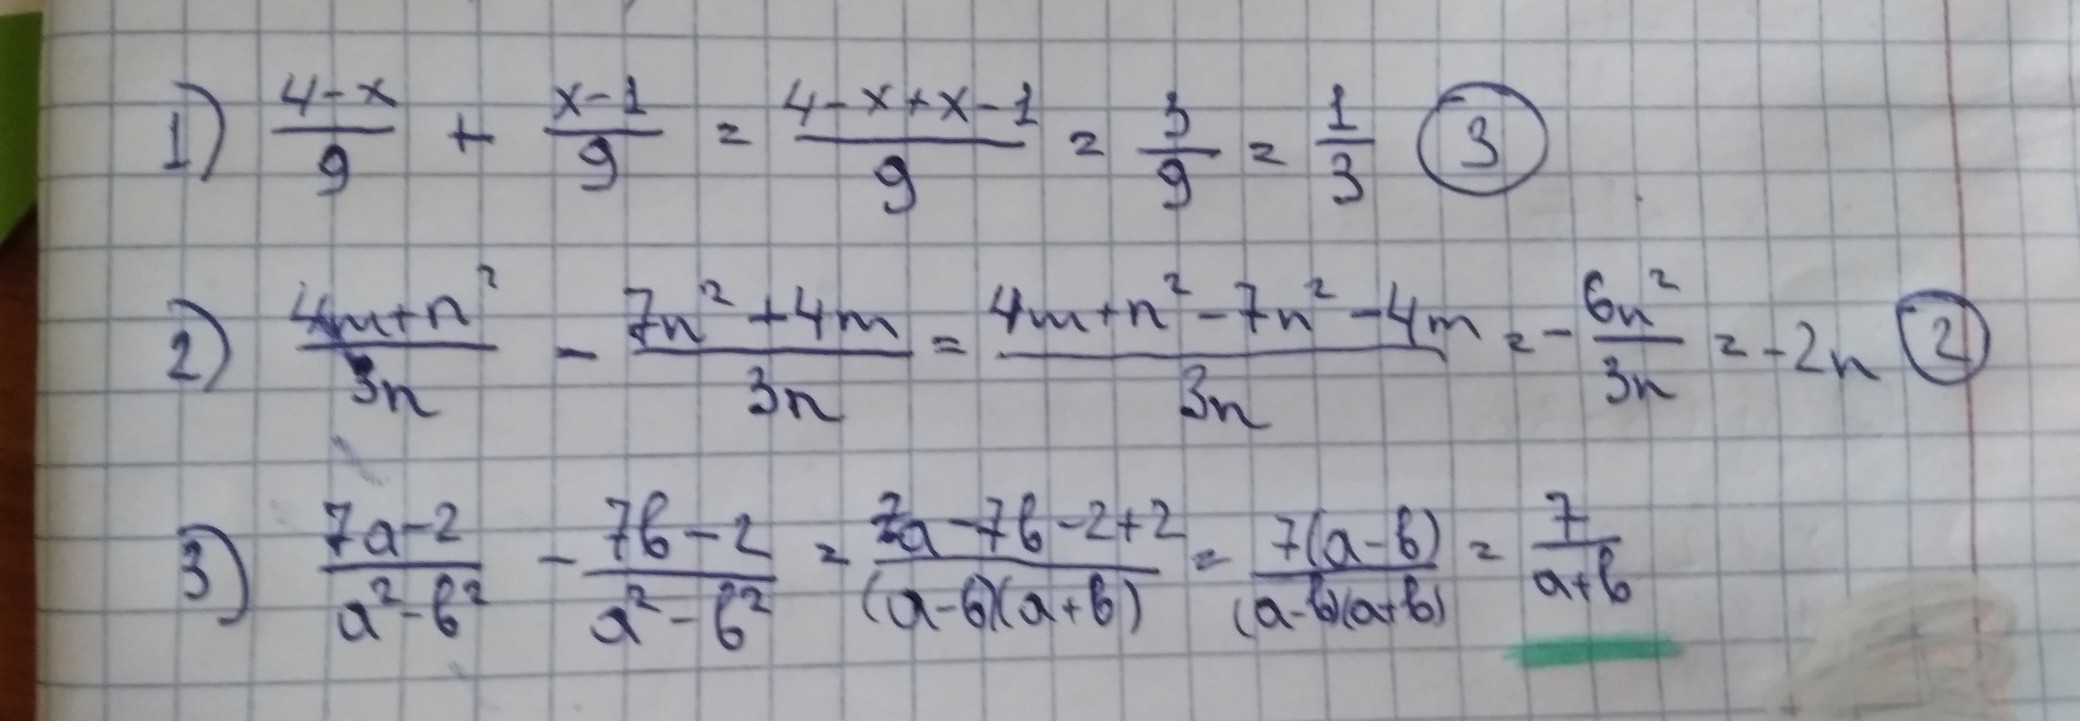 1) (4-x)/9 + (x-1)/9 = (4-x+x-1)/9 = 3/9 = 1/3 ③
2) (4m+n²)/3n - (7n²+4m)/3n = (4m+n²-7n²-4m)/3n = -6n²/3n = -2n ②
3) (7a-2)/(a²-b²) - (7b-2)/(a²-b²) = (7a-7b-2+2)/((a-b)(a+b)) = 7(a-b)/((a-b)(a+b)) = 7/(a+b)